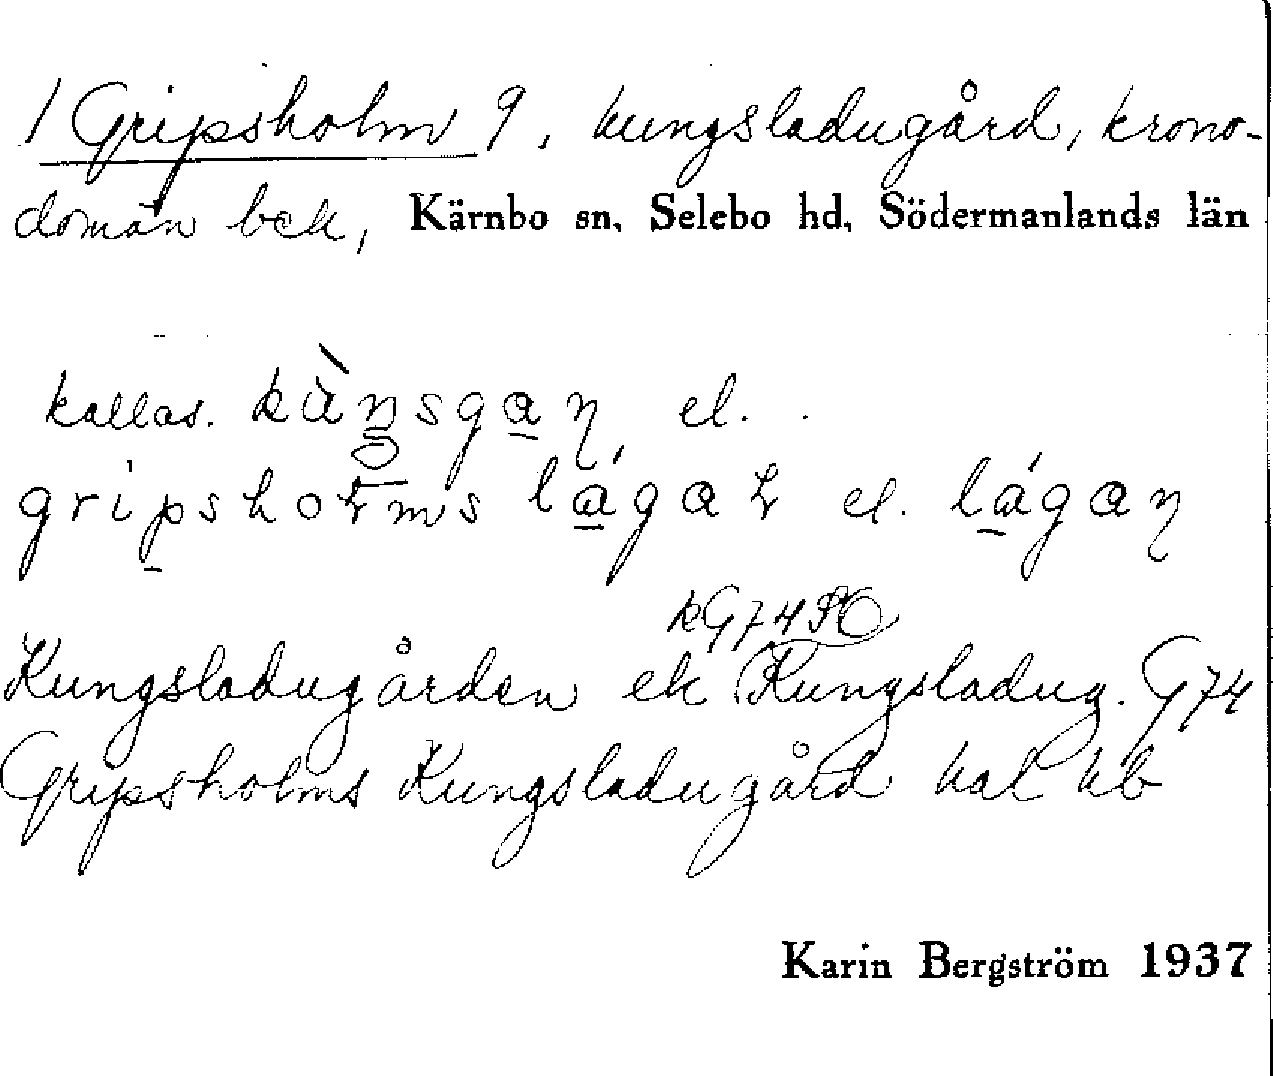 1 Gripsholm 9, kungsladugård, krono-
domän bek, Kärnbo sn, Selebo hd, Södermanlands län
kallas. el.
el.
kG74SO
Kungsladugården ek Kungsladug. G74
Gripsholms Kungsladugård kal kb
Karin Bergström 1937